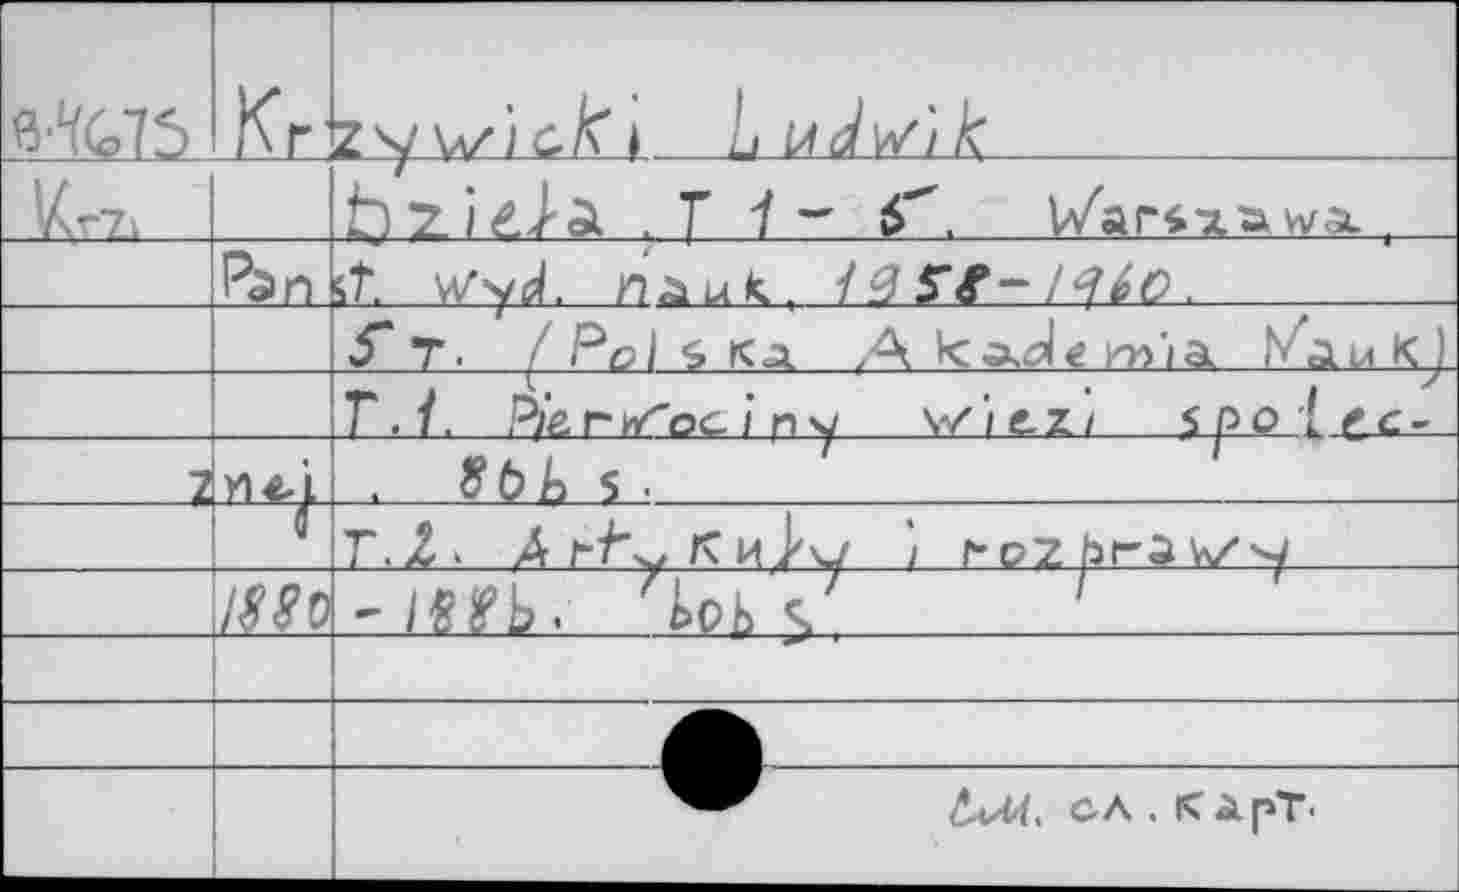 В-4675 Krzywicki Ludwik
Krz. Dzieła. T 1 - 5. Warszawa,
Panst. wyd. nauk, 1958-1960.
5 т. (Polska Akademia Nauk)
T.1. Pierwociny więzi społec-
znej. 866 s.
T.2. Artykuły i rozprawy
1880 - 1886. 606 s.
См. сл. карт.